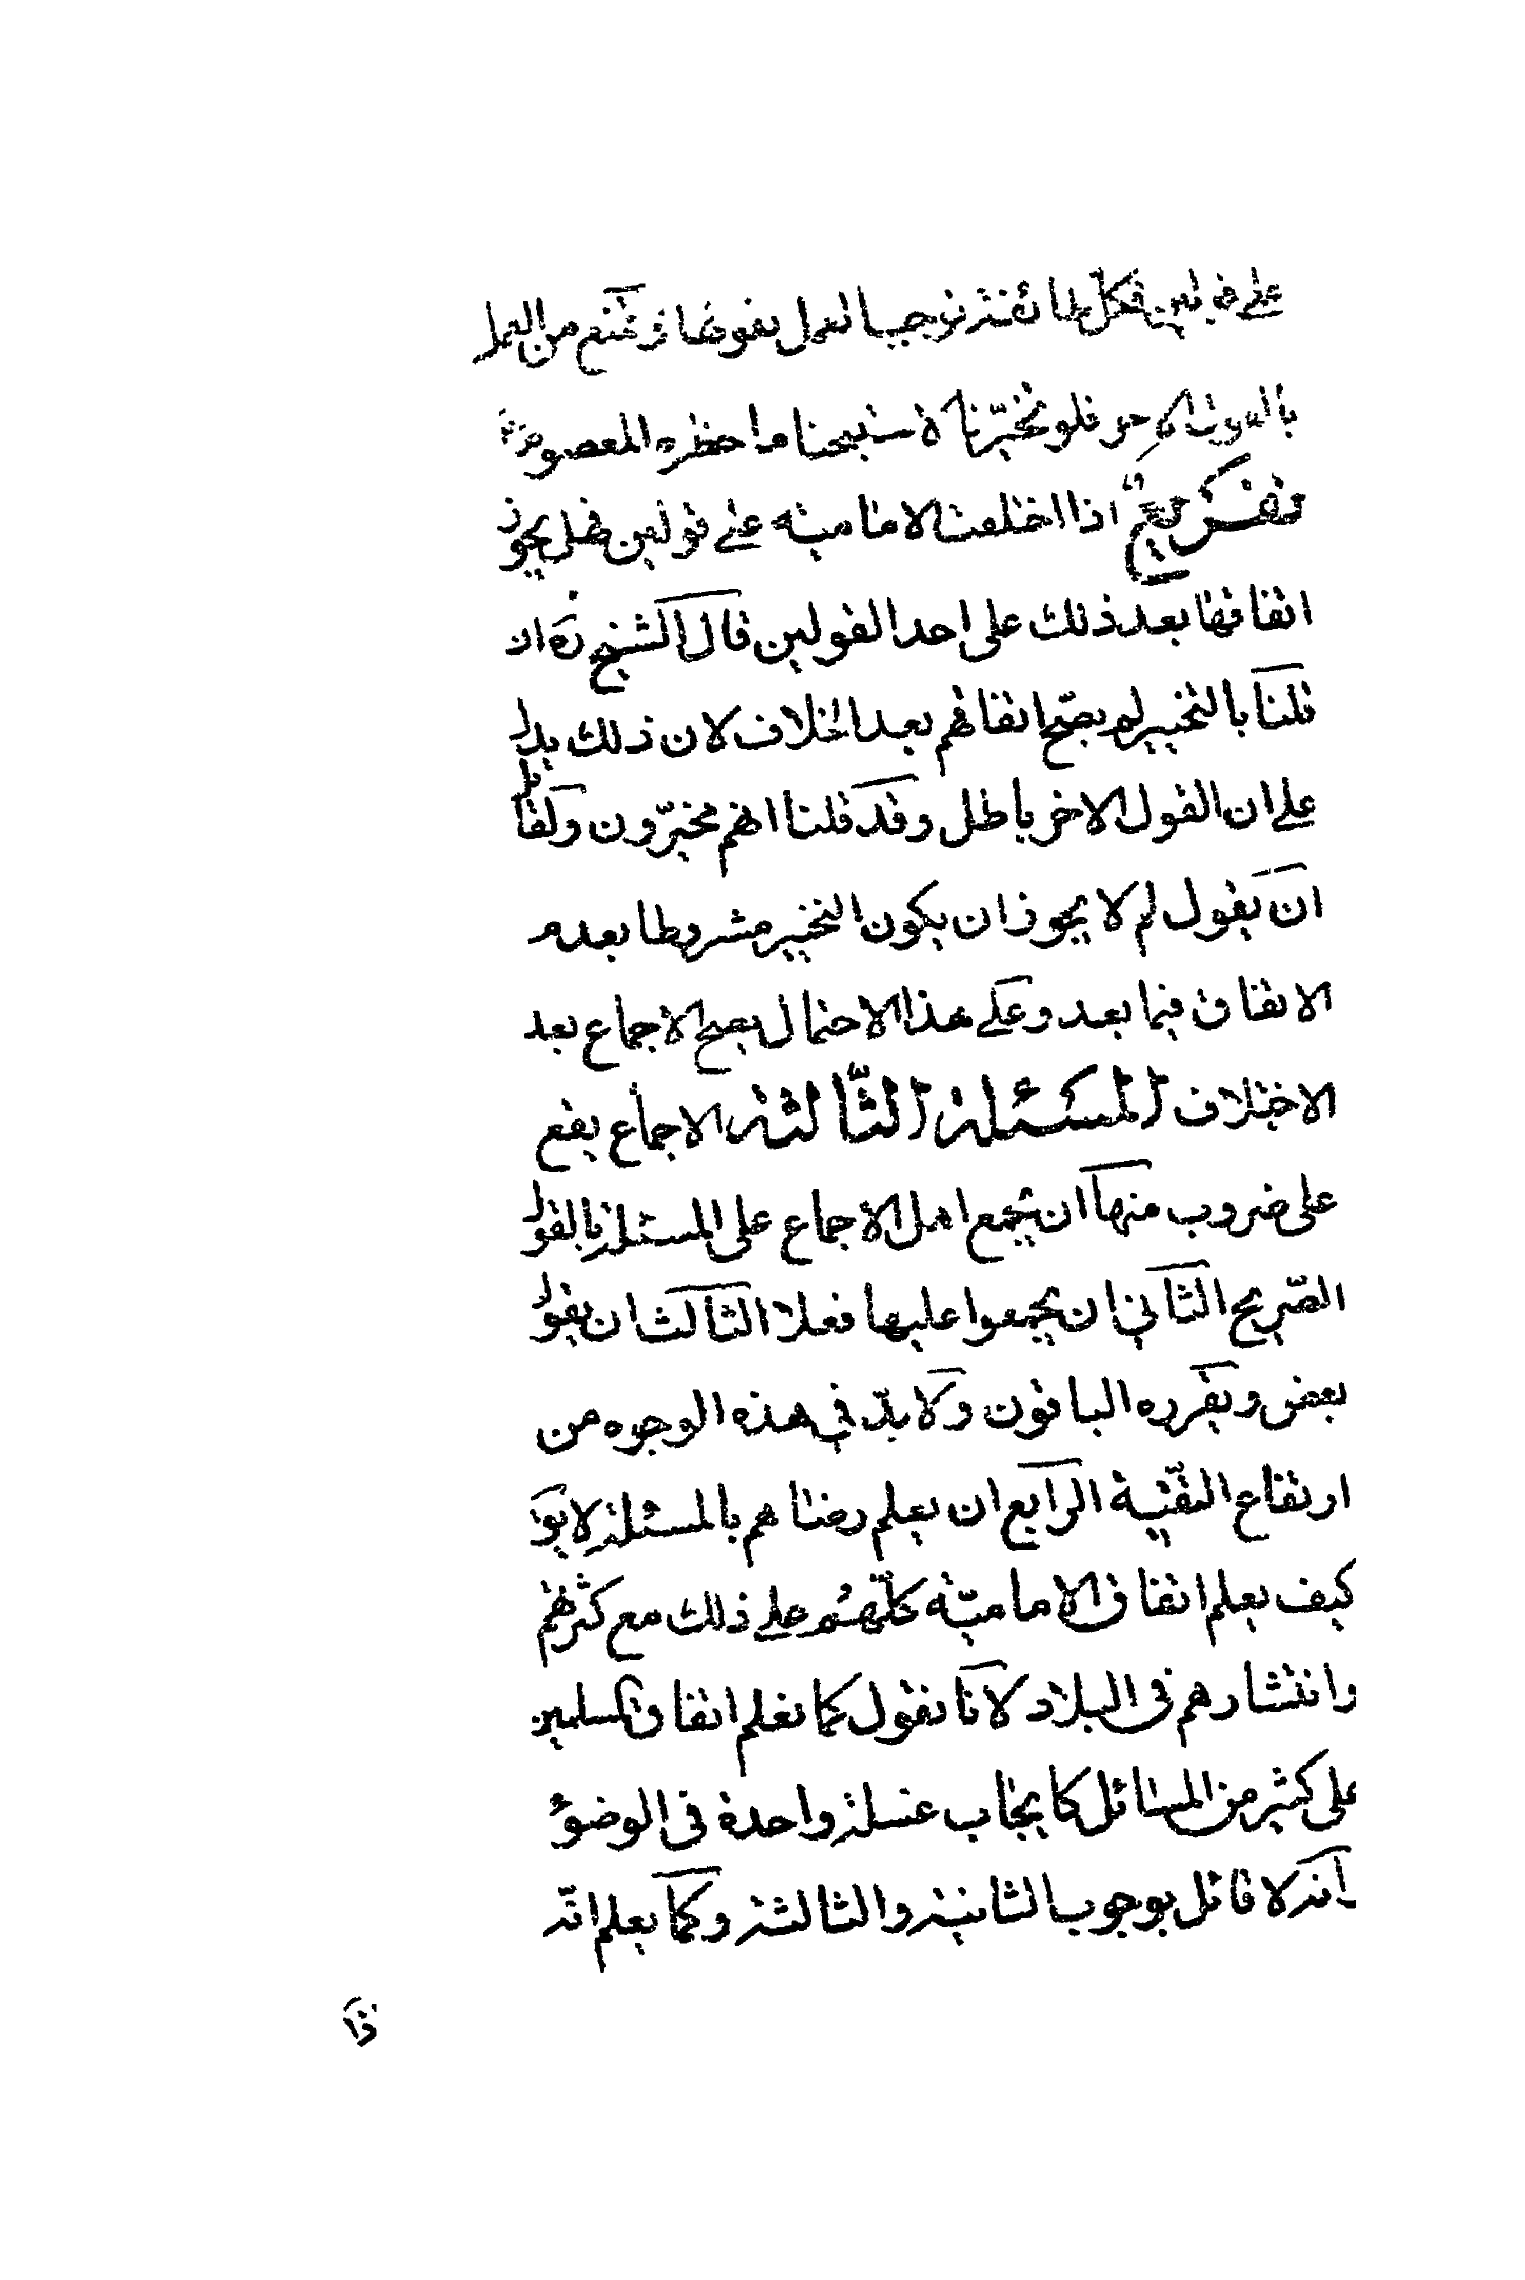 على قولين فكل طائفة توجب العمل بقولها وتمنع من العمل
بالقول الاخر فلو تخيرنا لاستبحنا ما حظره المعصوم
تفريع اذا اختلفت الامامية على قولين فهل يجوز
اتفاقها بعد ذلك على احد القولين قال الشيخ ره ان
قلنا بالتخيير لم يصح اتفاقهم بعد الخلاف لان ذلك يدل
على ان القول الاخر باطل وقد قلنا انهم مخيرون ولقائل
ان يقول لم لا يجوز ان يكون التخيير مشروطا بعدم
الاتفاق فيما بعد وعلى هذا الاحتمال يصح الاجماع بعد
الاختلاف المسئلة الثالثة الاجماع يقع
على ضروب منها ان يجمع اهل الاجماع على المسئلة بالقول
الصريح الثاني ان يجمعوا عليها فعلا الثالث ان يقول
بعض ويقرره الباقون ولا بد في هذه الوجوه من
ارتفاع التقية الرابع ان يعلم رضاهم بالمسئلة لا يق
كيف يعلم اتفاق الامامية كلهم على ذلك مع كثرتهم
وانتشارهم في البلاد لانا نقول كما نعلم اتفاق المسلمين
على كثير من المسائل كايجاب غسلة واحدة في الوضوء
انه لا قائل بوجوب الثانية والثالثة وكما يعلم انه